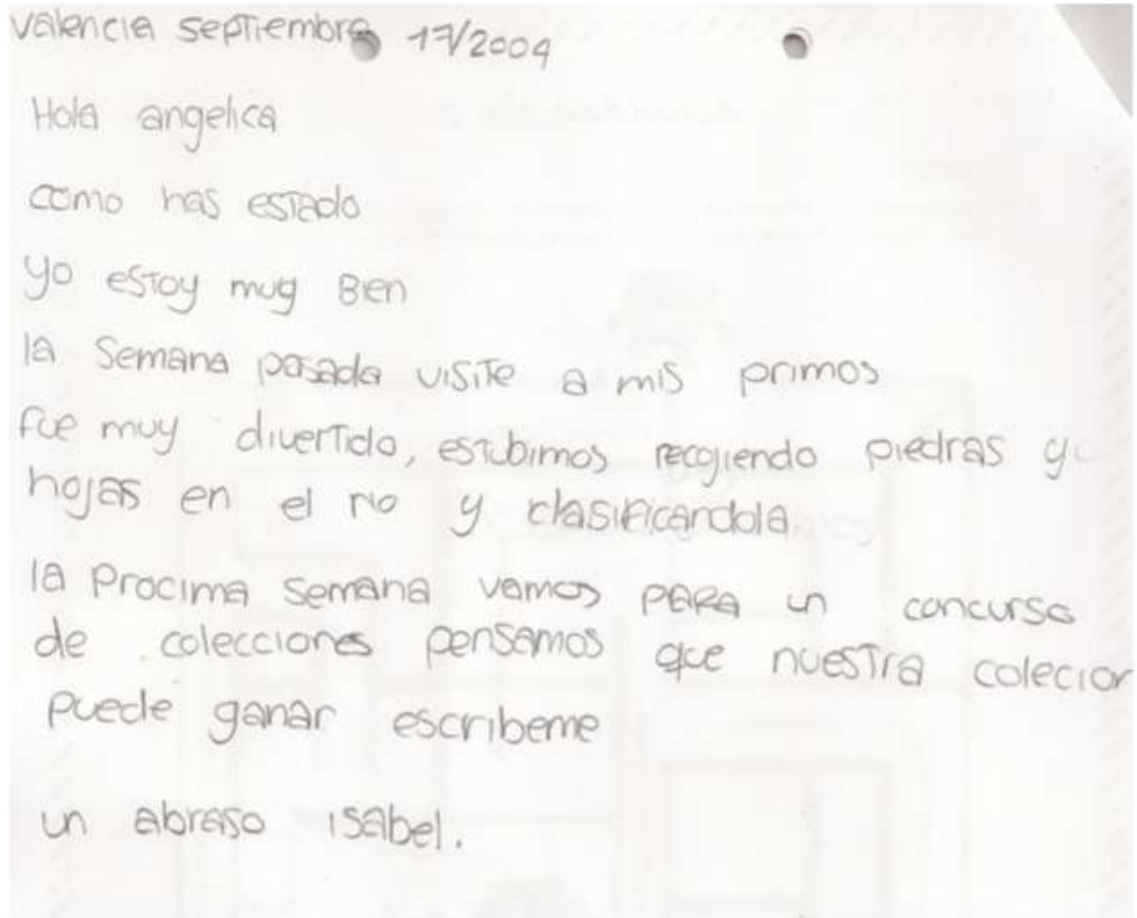 valencia septiembre 17/2004
Hola angelica
como has estado
yo estoy muy Bien
la Semana pasada visite a mis primos
fue muy divertido, estubimos recogiendo piedras y
hojas en el rio y clasificandola
la Procima semana vamos PARA un concurso
de colecciones pensamos que nuestra colecion
puede ganar escribeme
un abraso isabel.